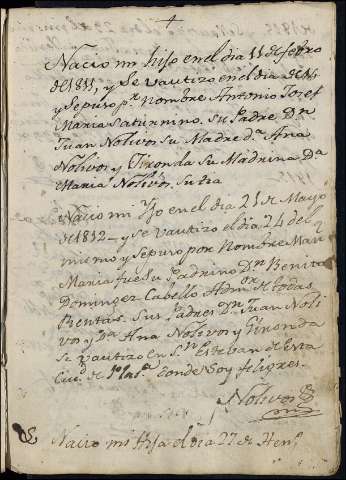 Nacio mi hijo en el dia 11 de febro
de 1811, y se vautizo en el dia
y se puso pr nombre Antonio Josef
Maria Saturnino. Su Padre Dn
Juan Nolivos su Madre da Ana
Nolivos y Gironda su Madrina Da
Maria Nolivos su tia
Nacio mi Yjo en el dia 21 de Mayo
de 1812 — y se vautizo el dia 24 del
mismo y se puso por nombre Manl
Maria fue su Padrino Dn Benito
Dominguez Cabello Admor de todas
Rentas. Sus Padres Dn Juan Noli
vos y Da Ana Nolivos y Gironda
se vautizo en Sn Esteban de esta
Ciud de donde soy feligres.
Nolivos
Nacio mi Hija el dia 27 de Henº